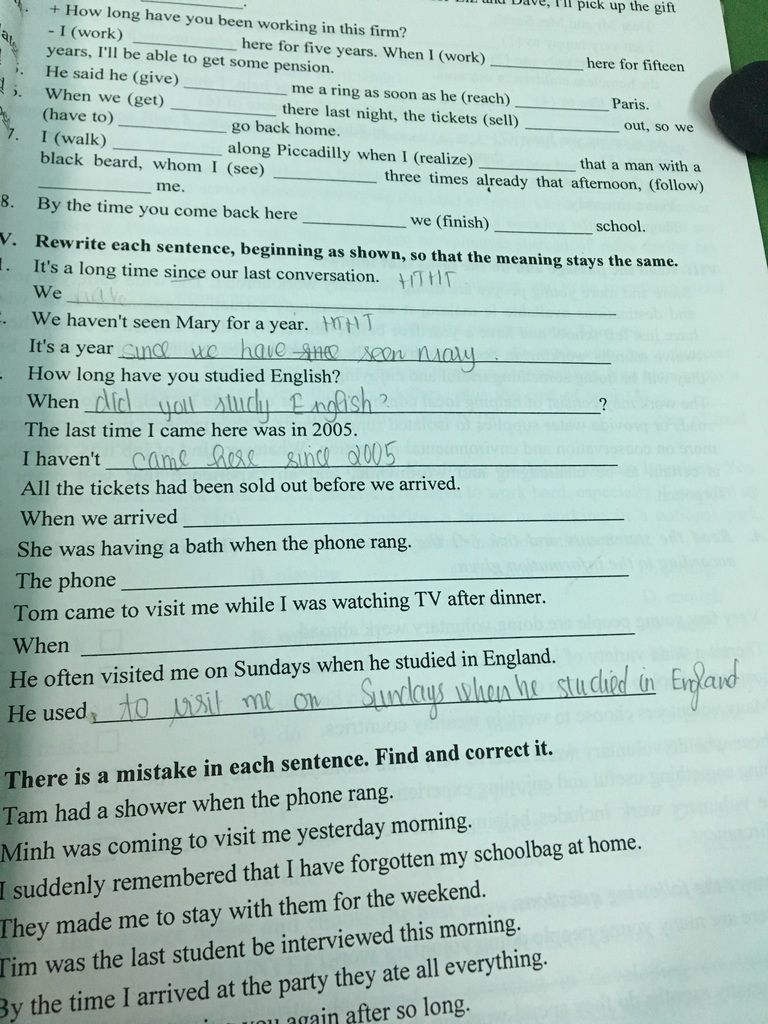 Dave, I'll pick up the gift
+ How long have you been working in this firm?
- I (work) ____________ here for five years. When I (work) ____________ here for fifteen
years, I'll be able to get some pension.
He said he (give) ____________ me a ring as soon as he (reach) ____________ Paris.
When we (get) ____________ there last night, the tickets (sell) ____________ out, so we
(have to) ____________ go back home.
7. I (walk) ____________ along Piccadilly when I (realize) ____________ that a man with a
black beard, whom I (see) ____________ three times already that afternoon, (follow)
____________ me.
8. By the time you come back here ____________ we (finish) ____________ school.
V. Rewrite each sentence, beginning as shown, so that the meaning stays the same.
It's a long time since our last conversation. HTHT
We have
We haven't seen Mary for a year. HTHT
It's a year since we have since seen Mary.
How long have you studied English?
When did you study English? ?
The last time I came here was in 2005.
I haven't came here since 2005
All the tickets had been sold out before we arrived.
When we arrived ____________
She was having a bath when the phone rang.
The phone ____________
Tom came to visit me while I was watching TV after dinner.
When ____________
He often visited me on Sundays when he studied in England.
He used to visit me on Sundays when he studied in England
There is a mistake in each sentence. Find and correct it.
Tam had a shower when the phone rang.
Minh was coming to visit me yesterday morning.
I suddenly remembered that I have forgotten my schoolbag at home.
They made me to stay with them for the weekend.
Tim was the last student be interviewed this morning.
By the time I arrived at the party they ate all everything.
you again after so long.